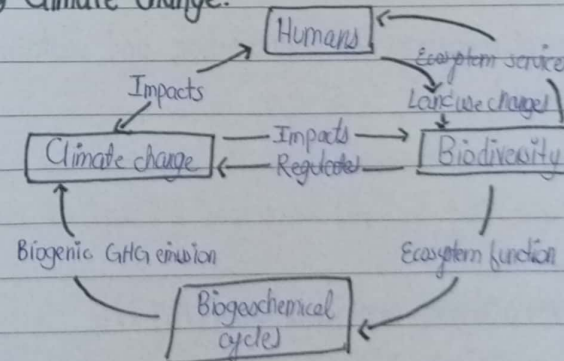 Climate change.
Humans
Ecosystem service
Impacts
Land use changes
Climate change
Impacts
Regulates
Biodiversity
Biogenic GHG emission
Ecosystem function
Biogeochemical
cycles